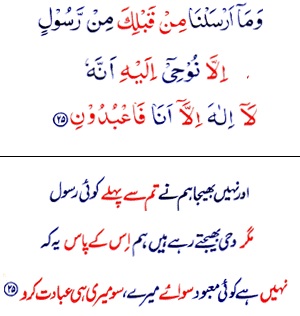 وَمَاۤ اَرْسَلْنَا مِنْ قَبْلِكَ مِنْ رَّسُوْلٍ
اِلَّا نُوْحِیْۤ اِلَیْهِ اَنَّهٗ
لَاۤ اِلٰهَ اِلَّاۤ اَنَا فَاعْبُدُوْنِ ﴿۲۵﴾
اور نہیں بھیجا ہم نے تم سے پہلے کوئی رسول
مگر وحی بھیجتے رہے ہیں ہم اِس کے پاس یہ کہ
نہیں ہے کوئی معبود سوائے میرے، سو میری ہی عبادت کرو ﴿۲۵﴾